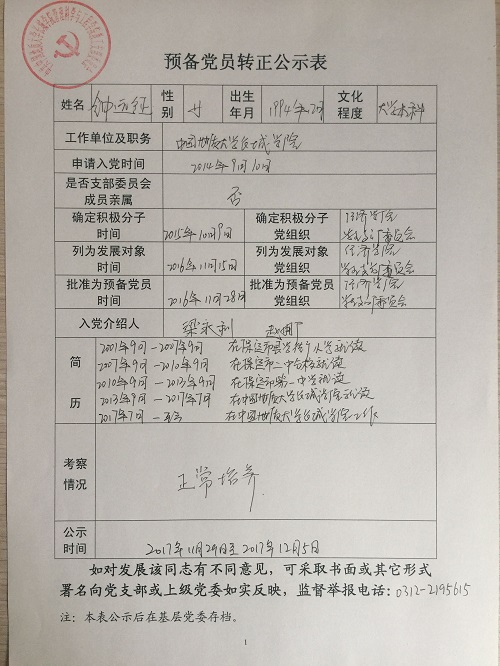 预备党员转正公示表
姓名 性别 女 出生年月 1994年2月 文化程度 大学本科
工作单位及职务 中国地质大学长城学院
申请入党时间 2014年9月10日
是否支部委员会成员亲属 否
确定积极分子时间 2015年10月9日 确定积极分子党组织 经济学院党总支部委员会
列为发展对象时间 2016年11月15日 列为发展对象党组织 经济学院党总支部委员会
批准为预备党员时间 2016年11月28日 批准为预备党员党组织 经济学院党总支部委员会
入党介绍人 梁永利
简历
2001年9月—2007年9月 在保定市县学街小学就读
2007年9月—2010年9月 在保定市二中分校就读
2010年9月—2013年9月 在保定市第一中学就读
2013年9月—2017年7月 在中国地质大学长城学院就读
2017年7月—至今 在中国地质大学长城学院工作
考察情况 正常培养
公示时间 2017年11月29日至2017年12月5日
如对发展该同志有不同意见，可采取书面或其它形式
署名向党支部或上级党委如实反映，监督举报电话：0312-2195615
注：本表公示后在基层党委存档。
1